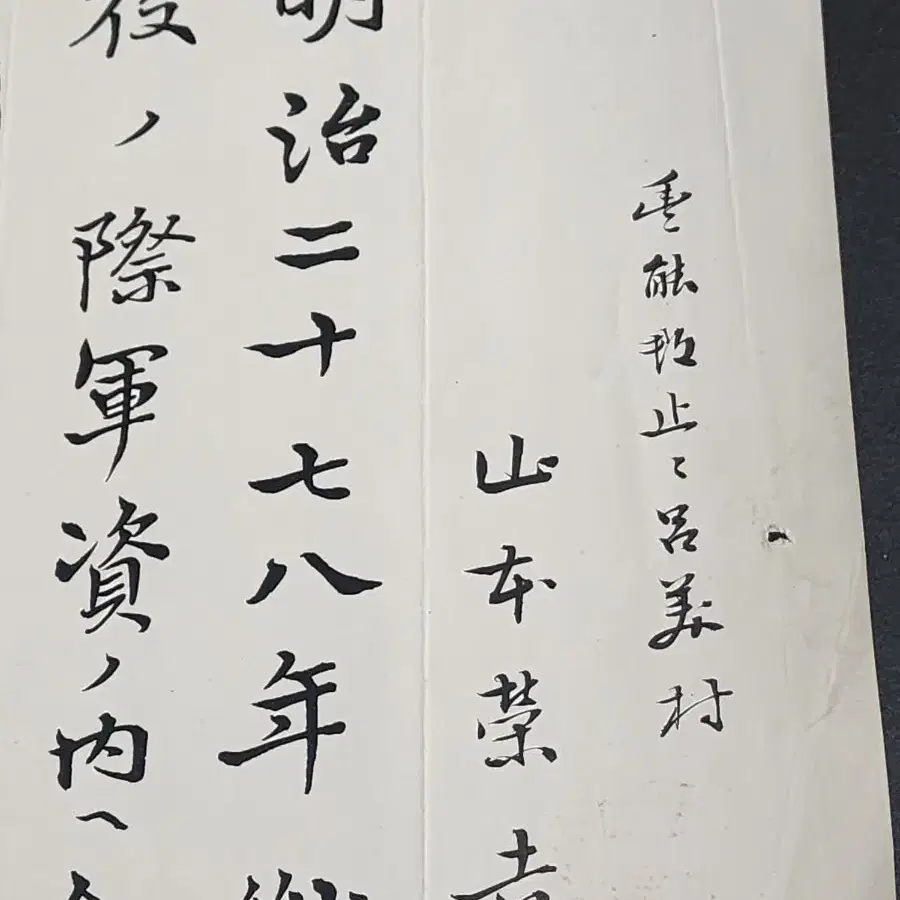 豊能郡止〻呂美村
山本榮
明治二十七八年
役ノ際軍資ノ内ヘ